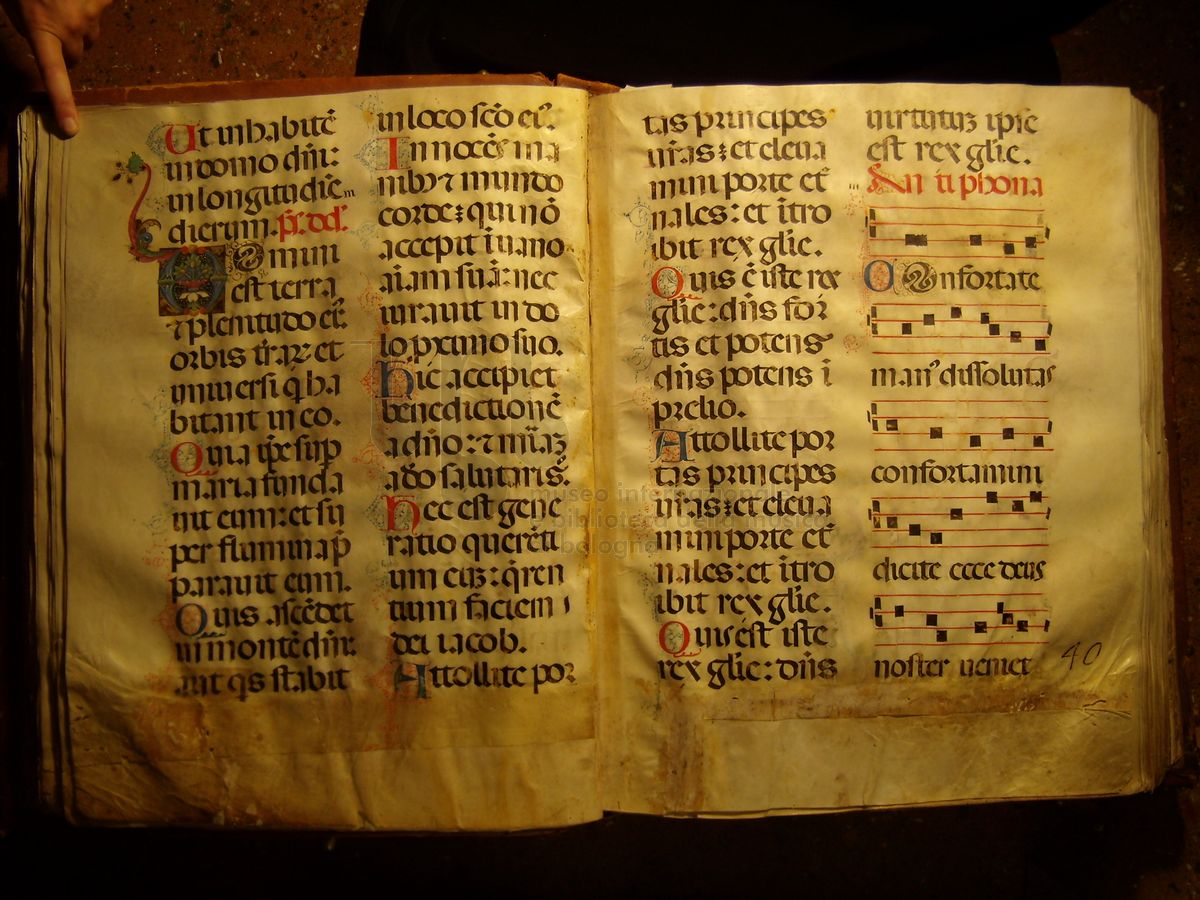 Ut inhabitē
in domo dn̄i:
in longitudiē
dierum. ps. dd.
Domini
est terra
⁊ plenitudo ei᷒:
orbis tr̄aꝝ et
uniuersi q̇ ha
bitant in eo.
Quia ip̄e sup̄
maria funda
uit eum: et su
per flumina p̄
parauit eum.
Quis ascēdet
in montē dn̄i:
aut q̇s stabit
in loco sc̄o ei᷒.
Innocēs ma
nibꝫ ⁊ mundo
corde: qui nō
accepit ī uano
aīam suā: nec
iurauit in do
lo ꝓximo suo.
Hic accipiet
benedictionē
a dn̄o: ⁊ mīam
a deo salutari
Hec est gene
ratio querēti
um eū: q̄ren
tium faciem
dei iacob.
Attollite por
tas principes
ur̄as: et eleua
mini porte et̄
nales: et ītro
ibit rex gl̄ie.
Quis ē iste rex
gl̄ie: dn̄s for
tis et potens
dn̄s potens ī
prelio.
Attollite por
tas principes
ur̄as: et eleua
mini porte et̄
nales: et ītro
ibit rex gl̄ie.
Quis est iste
rex gl̄ie: dn̄s
uirtutuꝫ ipse
est rex gl̄ie.
Antiphona
Confortate
man᷒ dissolutas
confortamini
dicite ecce deus
noster ueniet
40
museo internazionale
e biblioteca della musica
bologna